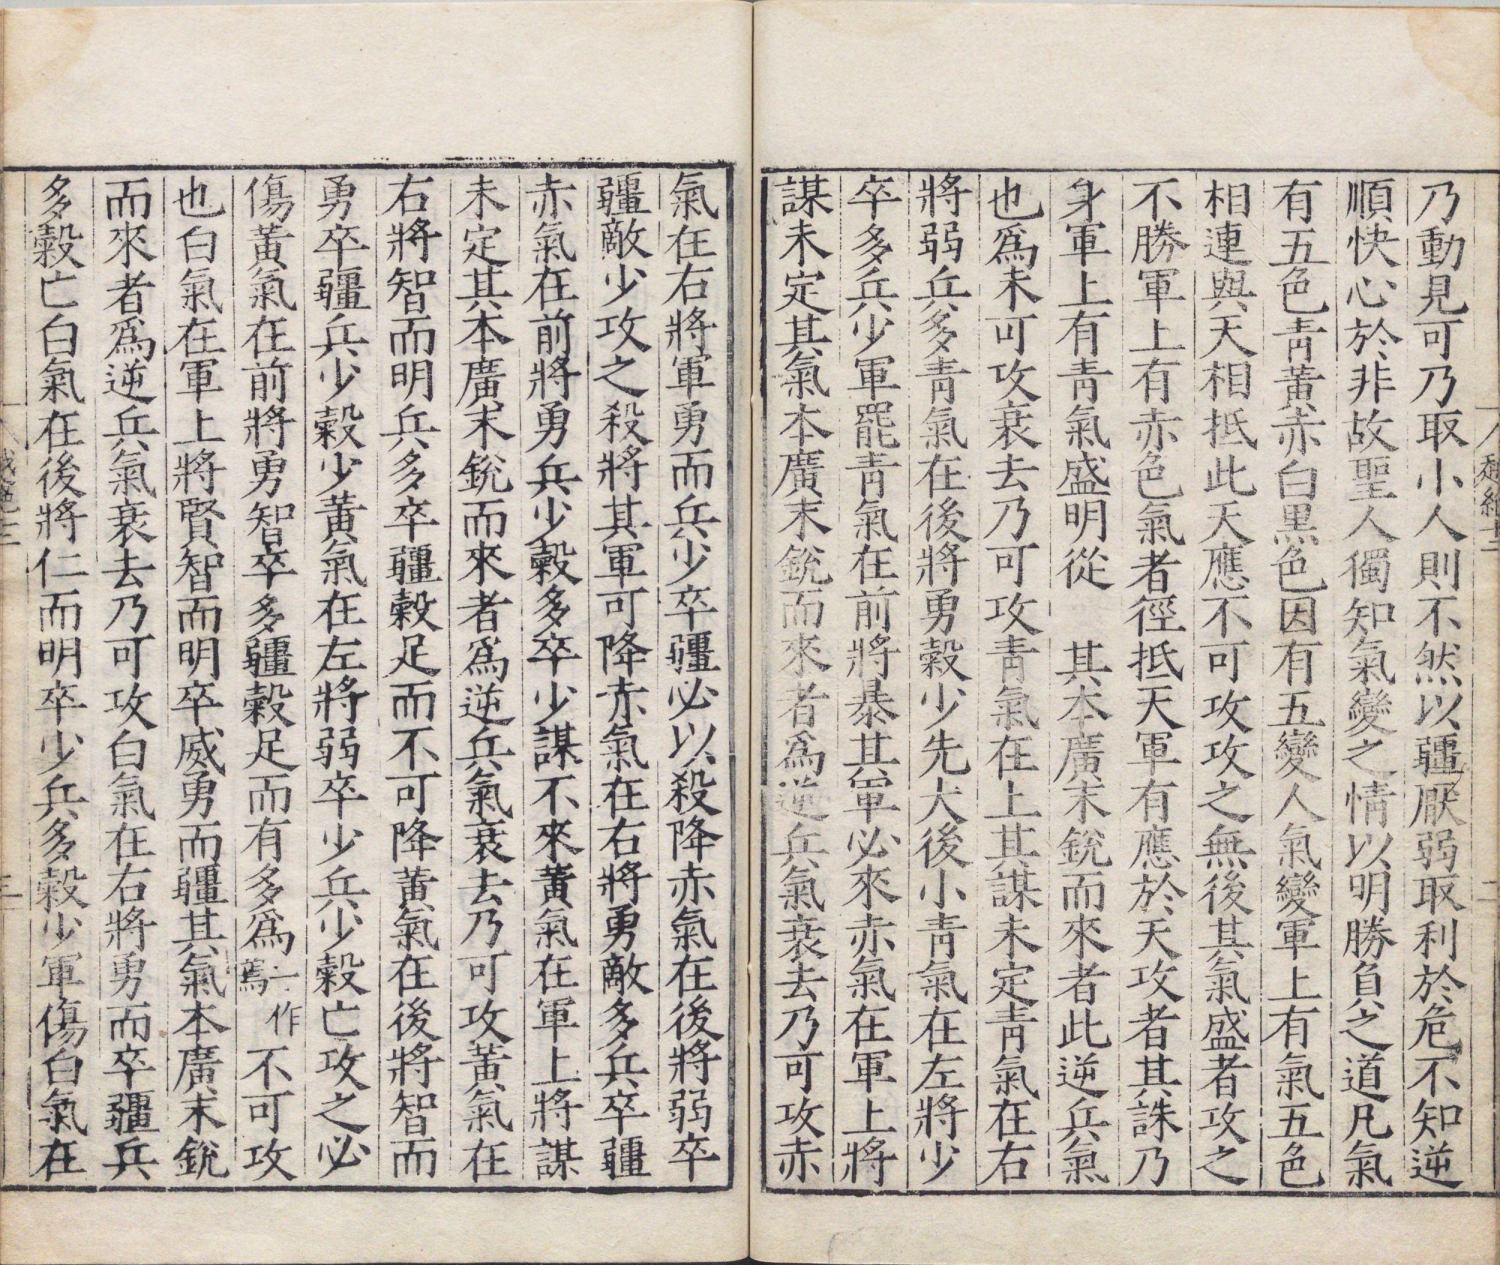 乃動見可乃取小人則不然以疆厭弱取利於危不知逆
順快心於非故聖人獨知氣變之情以明勝負之道凡氣
有五色靑黃赤白黑色因有五變人氣變軍上有氣五色
相連與天相抵此天應不可攻攻之無後其氣盛者攻之
不勝軍上有赤色氣者徑抵天軍有應於天攻者其誅乃
身軍上有靑氣盛明從　其本廣末銳而來者此逆兵氣
也爲未可攻衰去乃可攻靑氣在上其謀未定靑氣在右
將弱兵多靑氣在後將勇穀少先大後小靑氣在左將少
卒多兵少軍罷靑氣在前將暴其軍必來赤氣在軍上將
謀未定其氣本廣末銳而來者爲逆兵氣衰去乃可攻赤
氣在右將軍勇而兵少卒疆必以殺降赤氣在後將弱卒
疆敵少攻之殺將其軍可降赤氣在右將勇敵多兵卒疆
赤氣在前將勇兵少穀多卒少謀不來黃氣在軍上將謀
未定其本廣末銳而來者爲逆兵氣衰去乃可攻黃氣在
右將智而明兵多卒疆穀足而不可降黃氣在後將智而
勇卒疆兵少穀少黃氣在左將弱卒少兵少穀亡攻之必
傷黃氣在前將勇智卒多疆穀足而有多爲一作焉不可攻
也白氣在軍上將賢智而明卒威勇而疆其氣本廣末銳
而來者爲逆兵氣衰去乃可攻白氣在右將勇而卒疆兵
多穀亡白氣在後將仁而明卒少兵多穀少軍傷白氣在